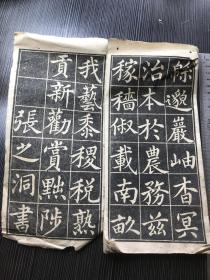 緜邈巖岫杳冥
治本於農務茲
稼穡俶載南畝
我藝黍稷稅熟
貢新勸賞黜陟
張之洞書